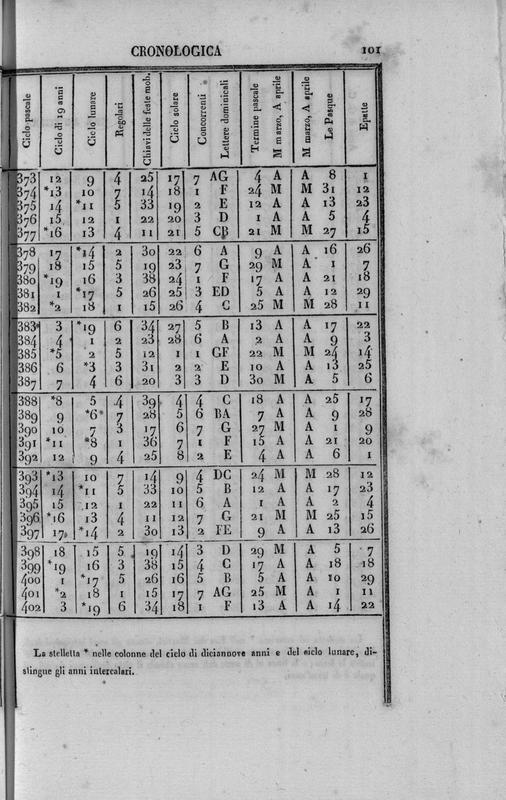 CRONOLOGICA 101
Ciclo pasquale | Ciclo di 19 anni | Ciclo lunare | Regolari | Chiavi delle feste mob. | Ciclo solare | Concorrenti | Lettere dominicali | Termine pascale | M marzo, A aprile | M marzo, A aprile | Le Pasque | Epatte
373 12 9 4 25 17 7 AG 4 A A 8 1
374 *13 10 7 14 18 1 F 24 M M 31 12
375 14 *11 5 33 19 2 E 12 A A 13 23
376 15 12 1 22 20 3 D 1 A A 5 4
377 *16 13 4 11 21 5 CB 21 M M 27 15
378 17 *14 2 30 22 6 A 9 A A 16 26
379 18 15 5 19 23 7 G 29 M A 1 7
380 *19 16 3 38 24 1 F 17 A A 21 18
381 1 *17 5 26 25 3 ED 5 A A 12 29
382 *2 18 1 15 26 4 C 25 M M 28 11
383 3 *19 6 34 27 5 B 13 A A 17 22
384 4 1 2 23 28 6 A 2 A A 9 3
385 *5 2 5 12 1 1 GF 22 M M 24 14
386 6 *3 3 31 2 2 E 10 A A 13 25
387 7 4 6 20 3 3 D 30 M A 5 6
388 *8 5 4 39 4 4 C 18 A A 25 17
389 9 *6 7 28 5 6 BA 7 A A 9 28
390 10 7 3 17 6 7 G 27 M A 1 9
391 *11 *8 1 36 7 1 F 15 A A 21 20
392 12 9 4 25 8 2 E 4 A A 6 1
393 *13 10 7 14 9 4 DC 24 M M 28 12
394 14 *11 5 33 10 5 B 12 A A 17 23
395 15 12 1 22 11 6 A 1 A A 2 4
396 *16 13 4 11 12 7 G 21 M M 25 15
397 17 *14 2 30 13 2 FE 9 A A 13 26
398 18 15 5 19 14 3 D 29 M A 5 7
399 *19 16 3 38 15 4 C 17 A A 18 18
400 1 *17 5 26 16 5 B 5 A A 10 29
401 *2 18 1 15 17 7 AG 25 M A 1 11
402 3 *19 6 34 18 1 F 13 A A 14 22
La stelletta * nelle colonne del ciclo di diciannove anni e del ciclo lunare, di-
stingue gli anni intercalari.